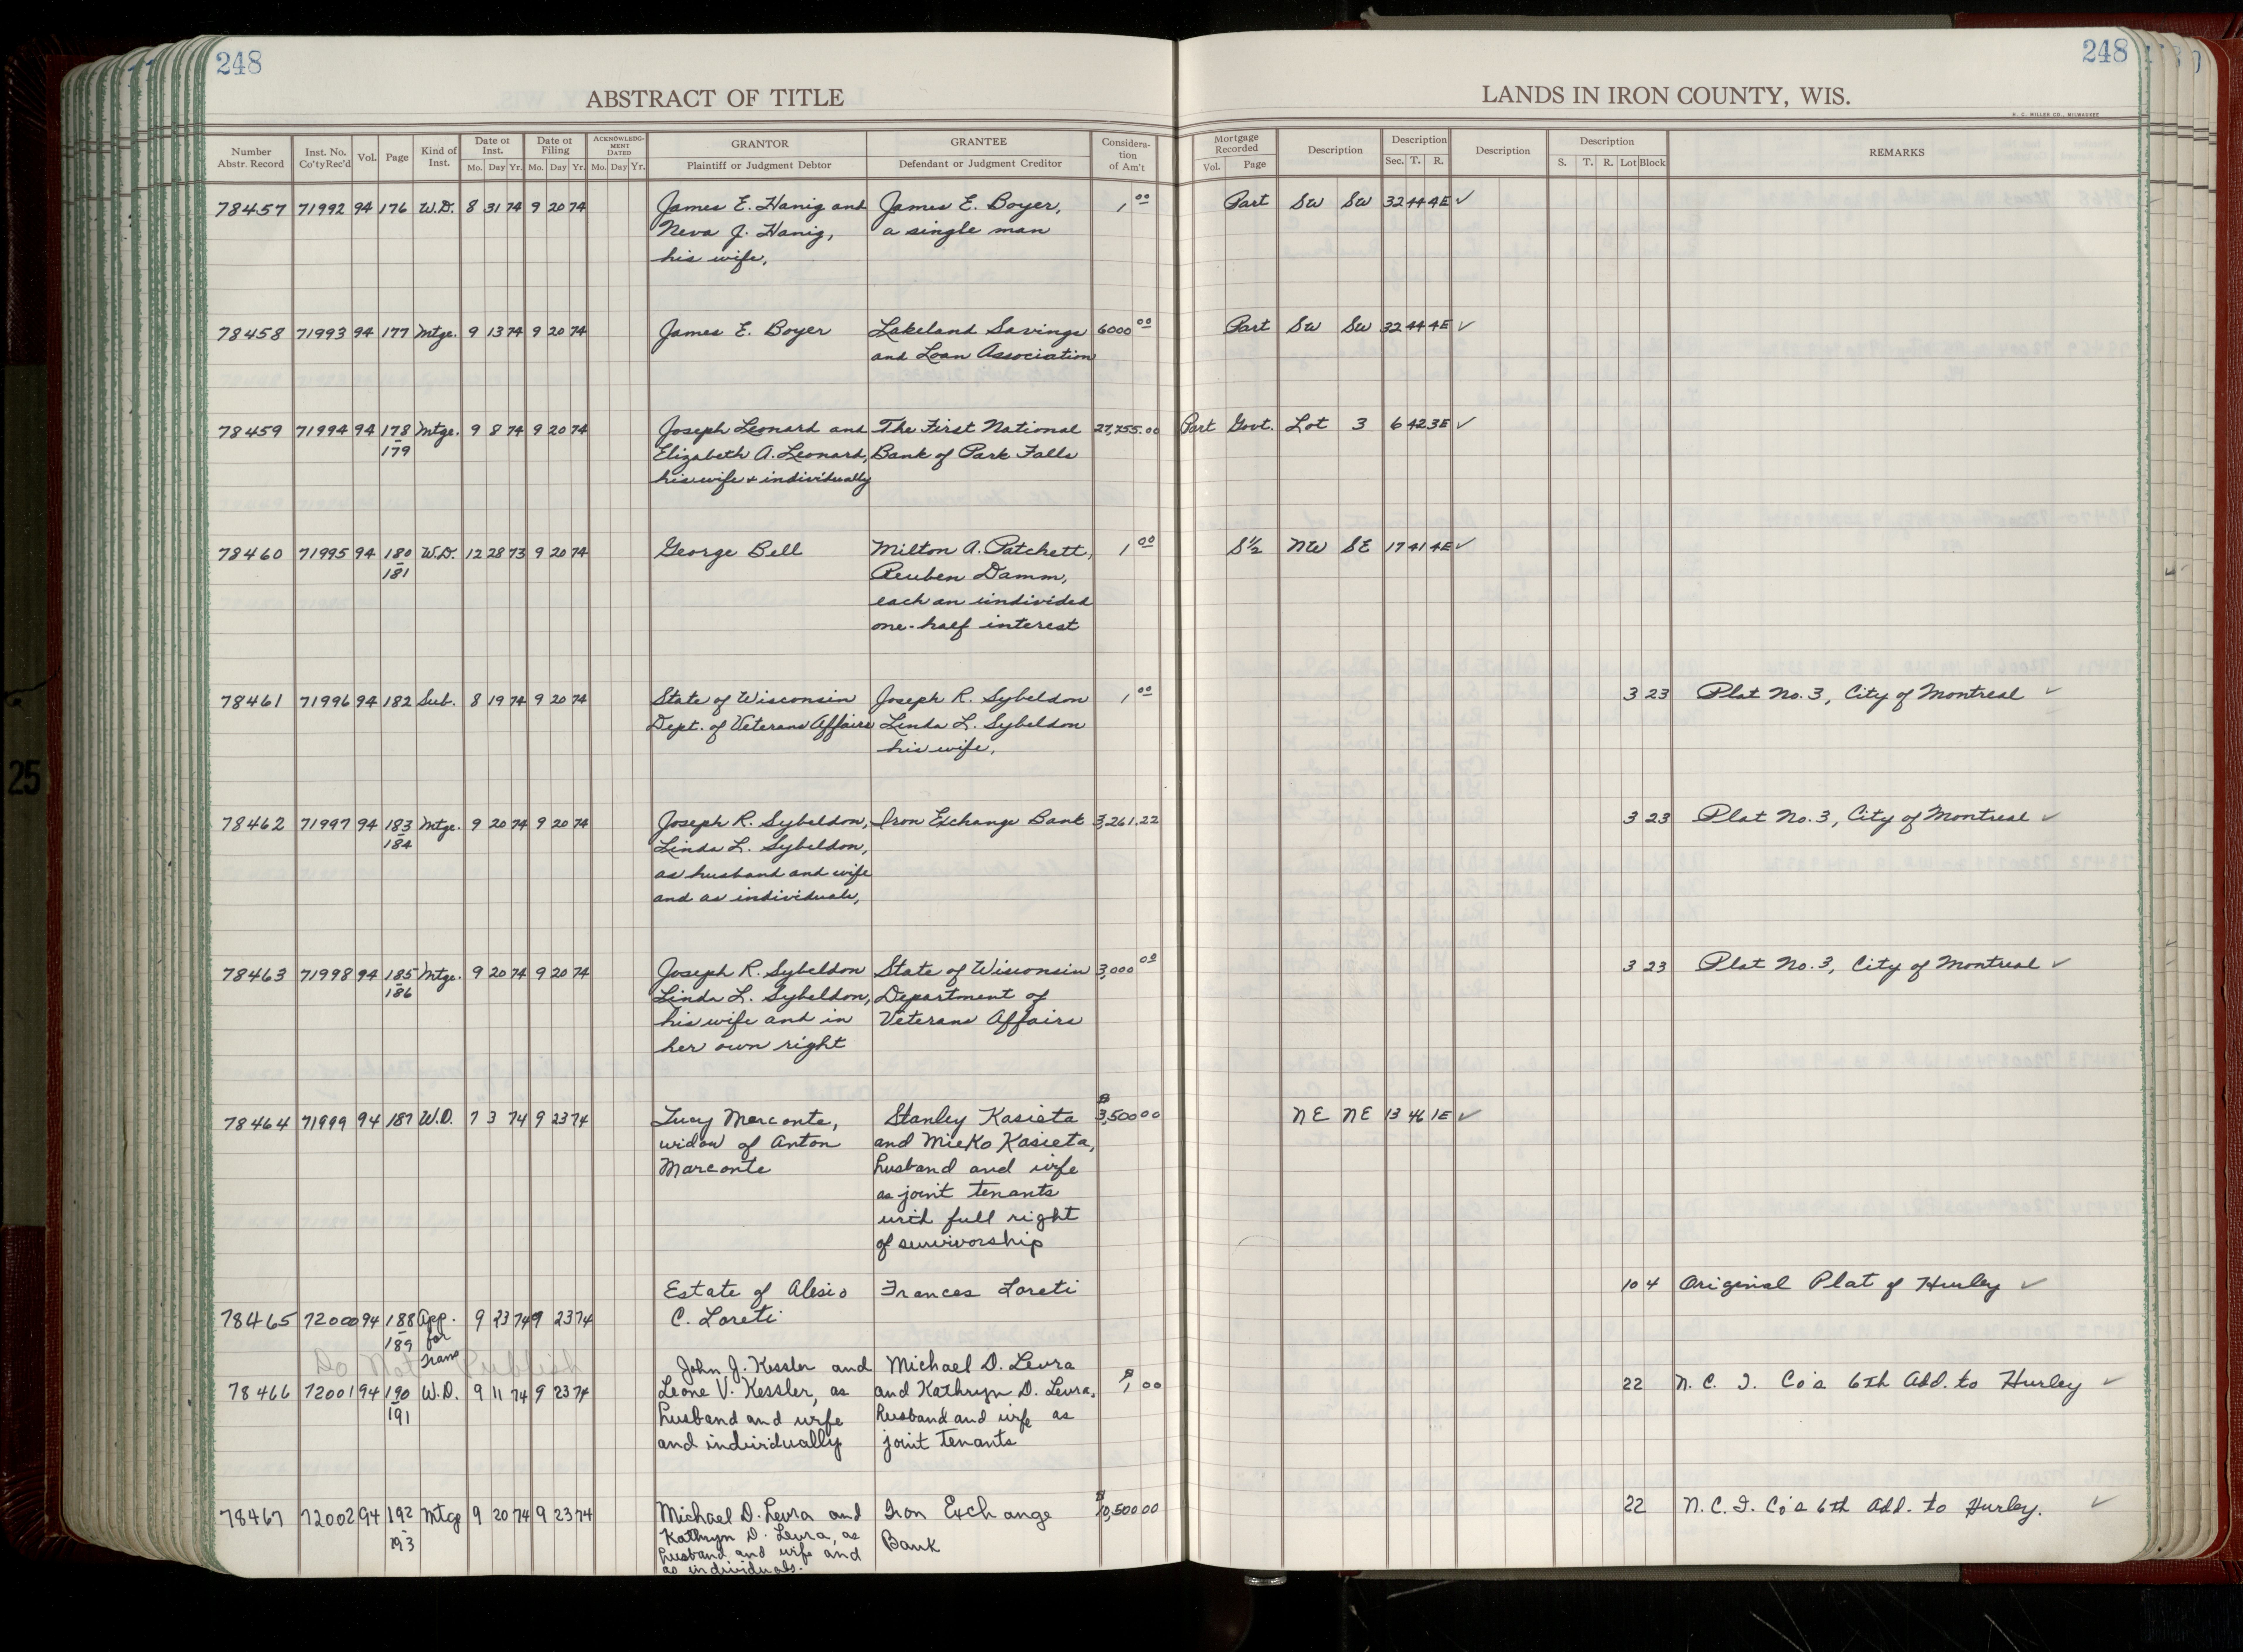 248
ABSTRACT OF TITLE
248
LANDS IN IRON COUNTY, WIS.
H. C. MILLER CO., MILWAUKEE
Number Abstr. Record | Inst. No. Co'ty Rec'd | Vol. | Page | Kind of Inst. | Date of Inst. Mo. Day Yr. | Date of Filing Mo. Day Yr. | ACKNOWLEDGMENT DATED Mo. Day Yr. | GRANTOR Plaintiff or Judgment Debtor | GRANTEE Defendant or Judgment Creditor | Consideration of Am't | Mortgage Recorded Vol. Page | Description | Description Sec. T. R. | Description | Description S. T. R. Lot Block | REMARKS
78457 71992 94 176 W.D. 8 31 74 9 20 74 James E. Hanig and James E. Boyer, 1 00 Part SW SW 32 44 4E ✓
Neva J. Hanig, a single man
his wife,
78458 71993 94 177 Mtge. 9 13 74 9 20 74 James E. Boyer Lakeland Savings 6000 00 Part SW SW 32 44 4E ✓
and Loan Association
78459 71994 94 178 Mtge. 9 8 74 9 20 74 Joseph Leonard and The First National 27,755.00 Part Govt. Lot 3 6 42 3E ✓
-179 Elizabeth A. Leonard, Bank of Park Falls
his wife + individually
78460 71995 94 180 W.D. 12 28 73 9 20 74 George Bell Milton A. Patchett, 1 00 S½ NW SE 17 41 4E ✓
-181 Reuben Damm,
each an undivided
one-half interest
78461 71996 94 182 Sub. 8 19 74 9 20 74 State of Wisconsin Joseph R. Sybeldon 1 00 3 23 Plat No. 3, City of Montreal ✓
Dept. of Veterans Affairs Linda L. Sybeldon
his wife,
78462 71997 94 183 Mtge. 9 20 74 9 20 74 Joseph R. Sybeldon, Iron Exchange Bank 3,261.22 3 23 Plat No. 3, City of Montreal ✓
-184 Linda L. Sybeldon,
as husband and wife
and as individuals,
78463 71998 94 185 Mtge. 9 20 74 9 20 74 Joseph R. Sybeldon State of Wisconsin 3,000 00 3 23 Plat No. 3, City of Montreal ✓
-186 Linda L. Sybeldon, Department of
his wife and in Veterans Affairs
her own right
78464 71999 94 187 W.D. 7 3 74 9 23 74 Lucy Marconte, Stanley Kasieta $3,500 00 NE NE 13 46 1E ✓
widow of Anton and Mieko Kasieta,
Marconte husband and wife
as joint tenants
with full right
of survivorship
Estate of Alesio Frances Loreti 10 4 Original Plat of Hurley ✓
78465 72000 94 188 App. 9 23 74 9 23 74 C. Loreti
-189 for
Trans
Do Not Publish
John J. Kessler and Michael D. Leura
78466 72001 94 190 W.D. 9 11 74 9 23 74 Leone V. Kessler, as and Kathryn D. Leura, $1 00 22 N. C. I. Co's 6th Add. to Hurley ✓
-191 husband and wife husband and wife as
and individually joint tenants
78467 72002 94 192 Mtge 9 20 74 9 23 74 Michael D. Leura and Iron Exchange $10,500 00 22 N. C. I. Co's 6th Add. to Hurley. ✓
-193 Kathryn D. Leura, as Bank
husband and wife and
as individuals.
25